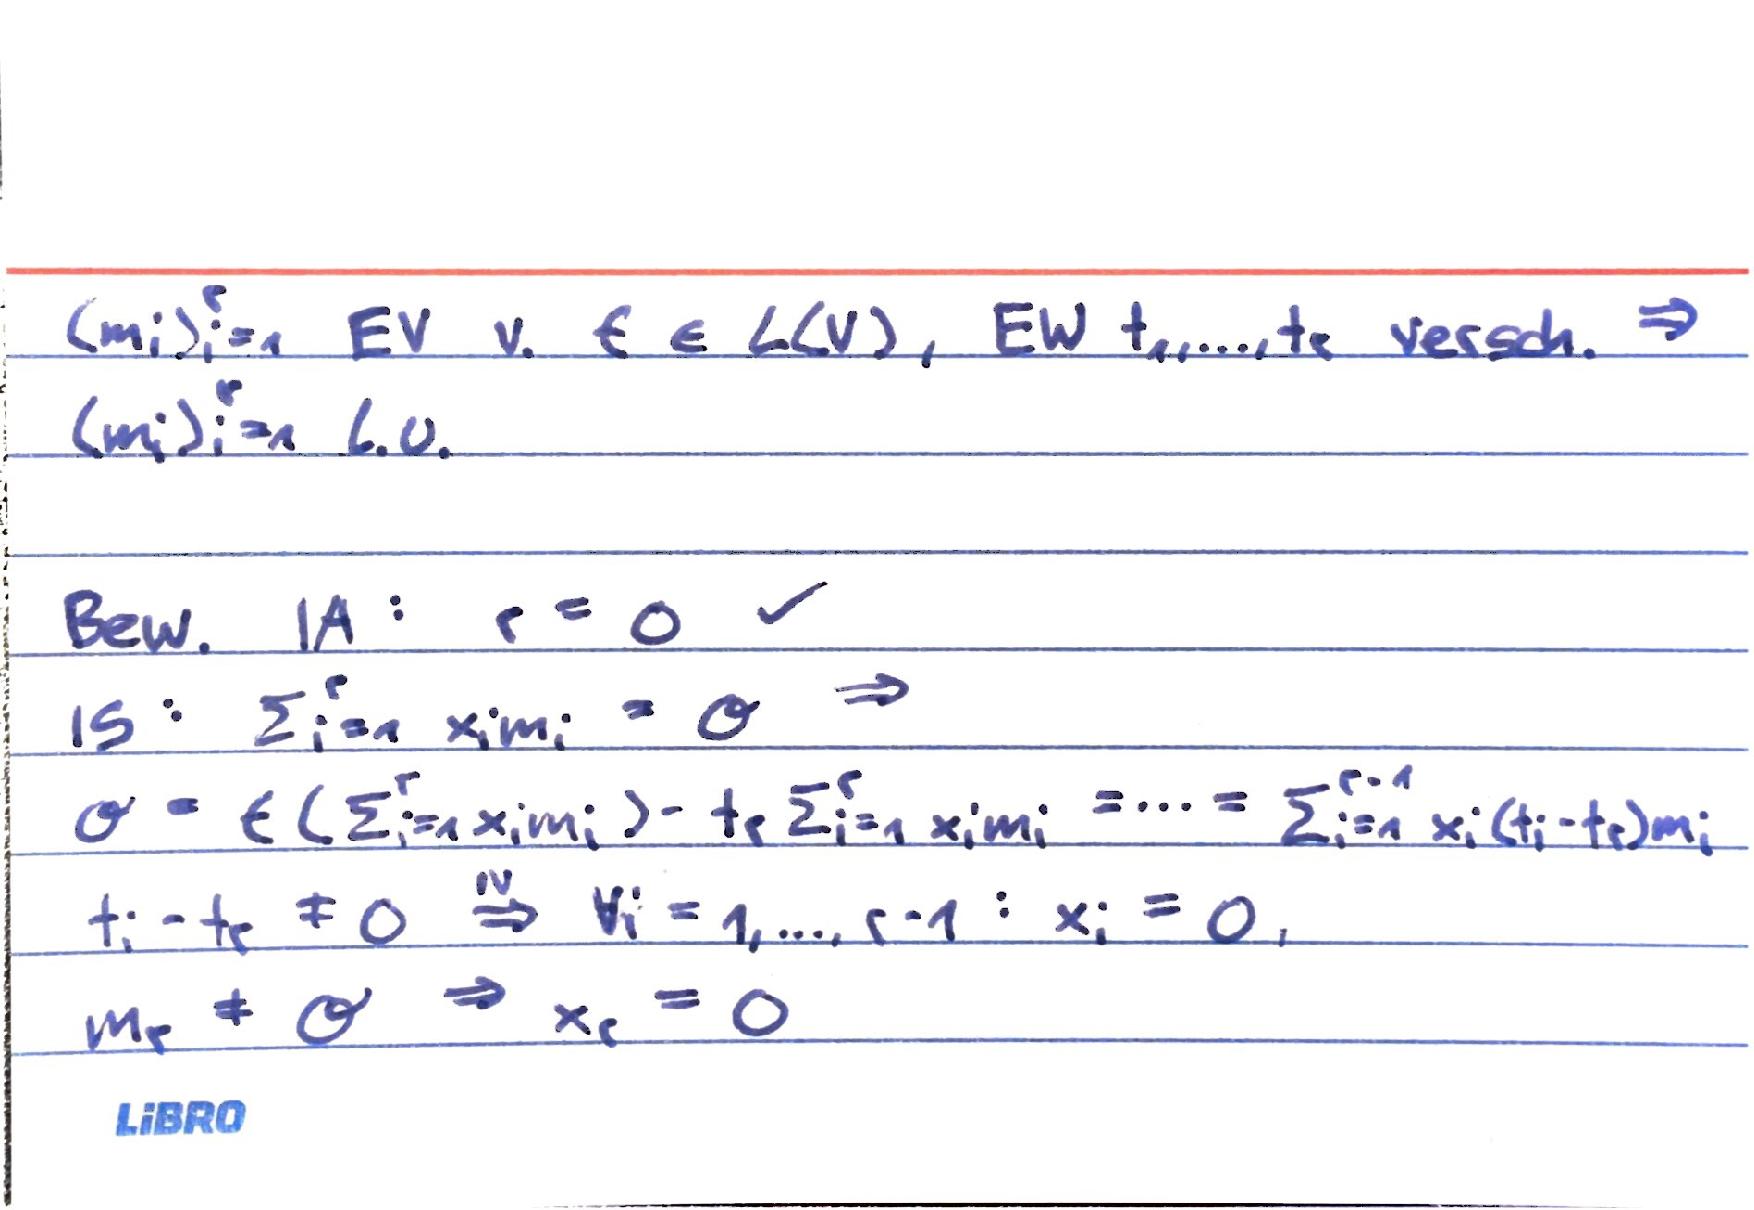 (mᵢ)ᵢ₌₁ʳ EV v. f ∈ L(V), EW t₁,...,tᵣ versch. ⇒
(mᵢ)ᵢ₌₁ʳ l.u.
Bew. IA: r = 0 ✓
IS: Σᵢ₌₁ʳ xᵢmᵢ = 𝒪 ⇒
𝒪 = f(Σᵢ₌₁ʳ xᵢmᵢ) - tᵣ Σᵢ₌₁ʳ xᵢmᵢ = ... = Σᵢ₌₁ʳ⁻¹ xᵢ(tᵢ-tᵣ)mᵢ
tᵢ - tᵣ ≠ 0 ⇒ᴵⱽ ∀i = 1,..., r-1 : xᵢ = 0,
mᵣ ≠ 𝒪 ⇒ xᵣ = 0
LiBRO